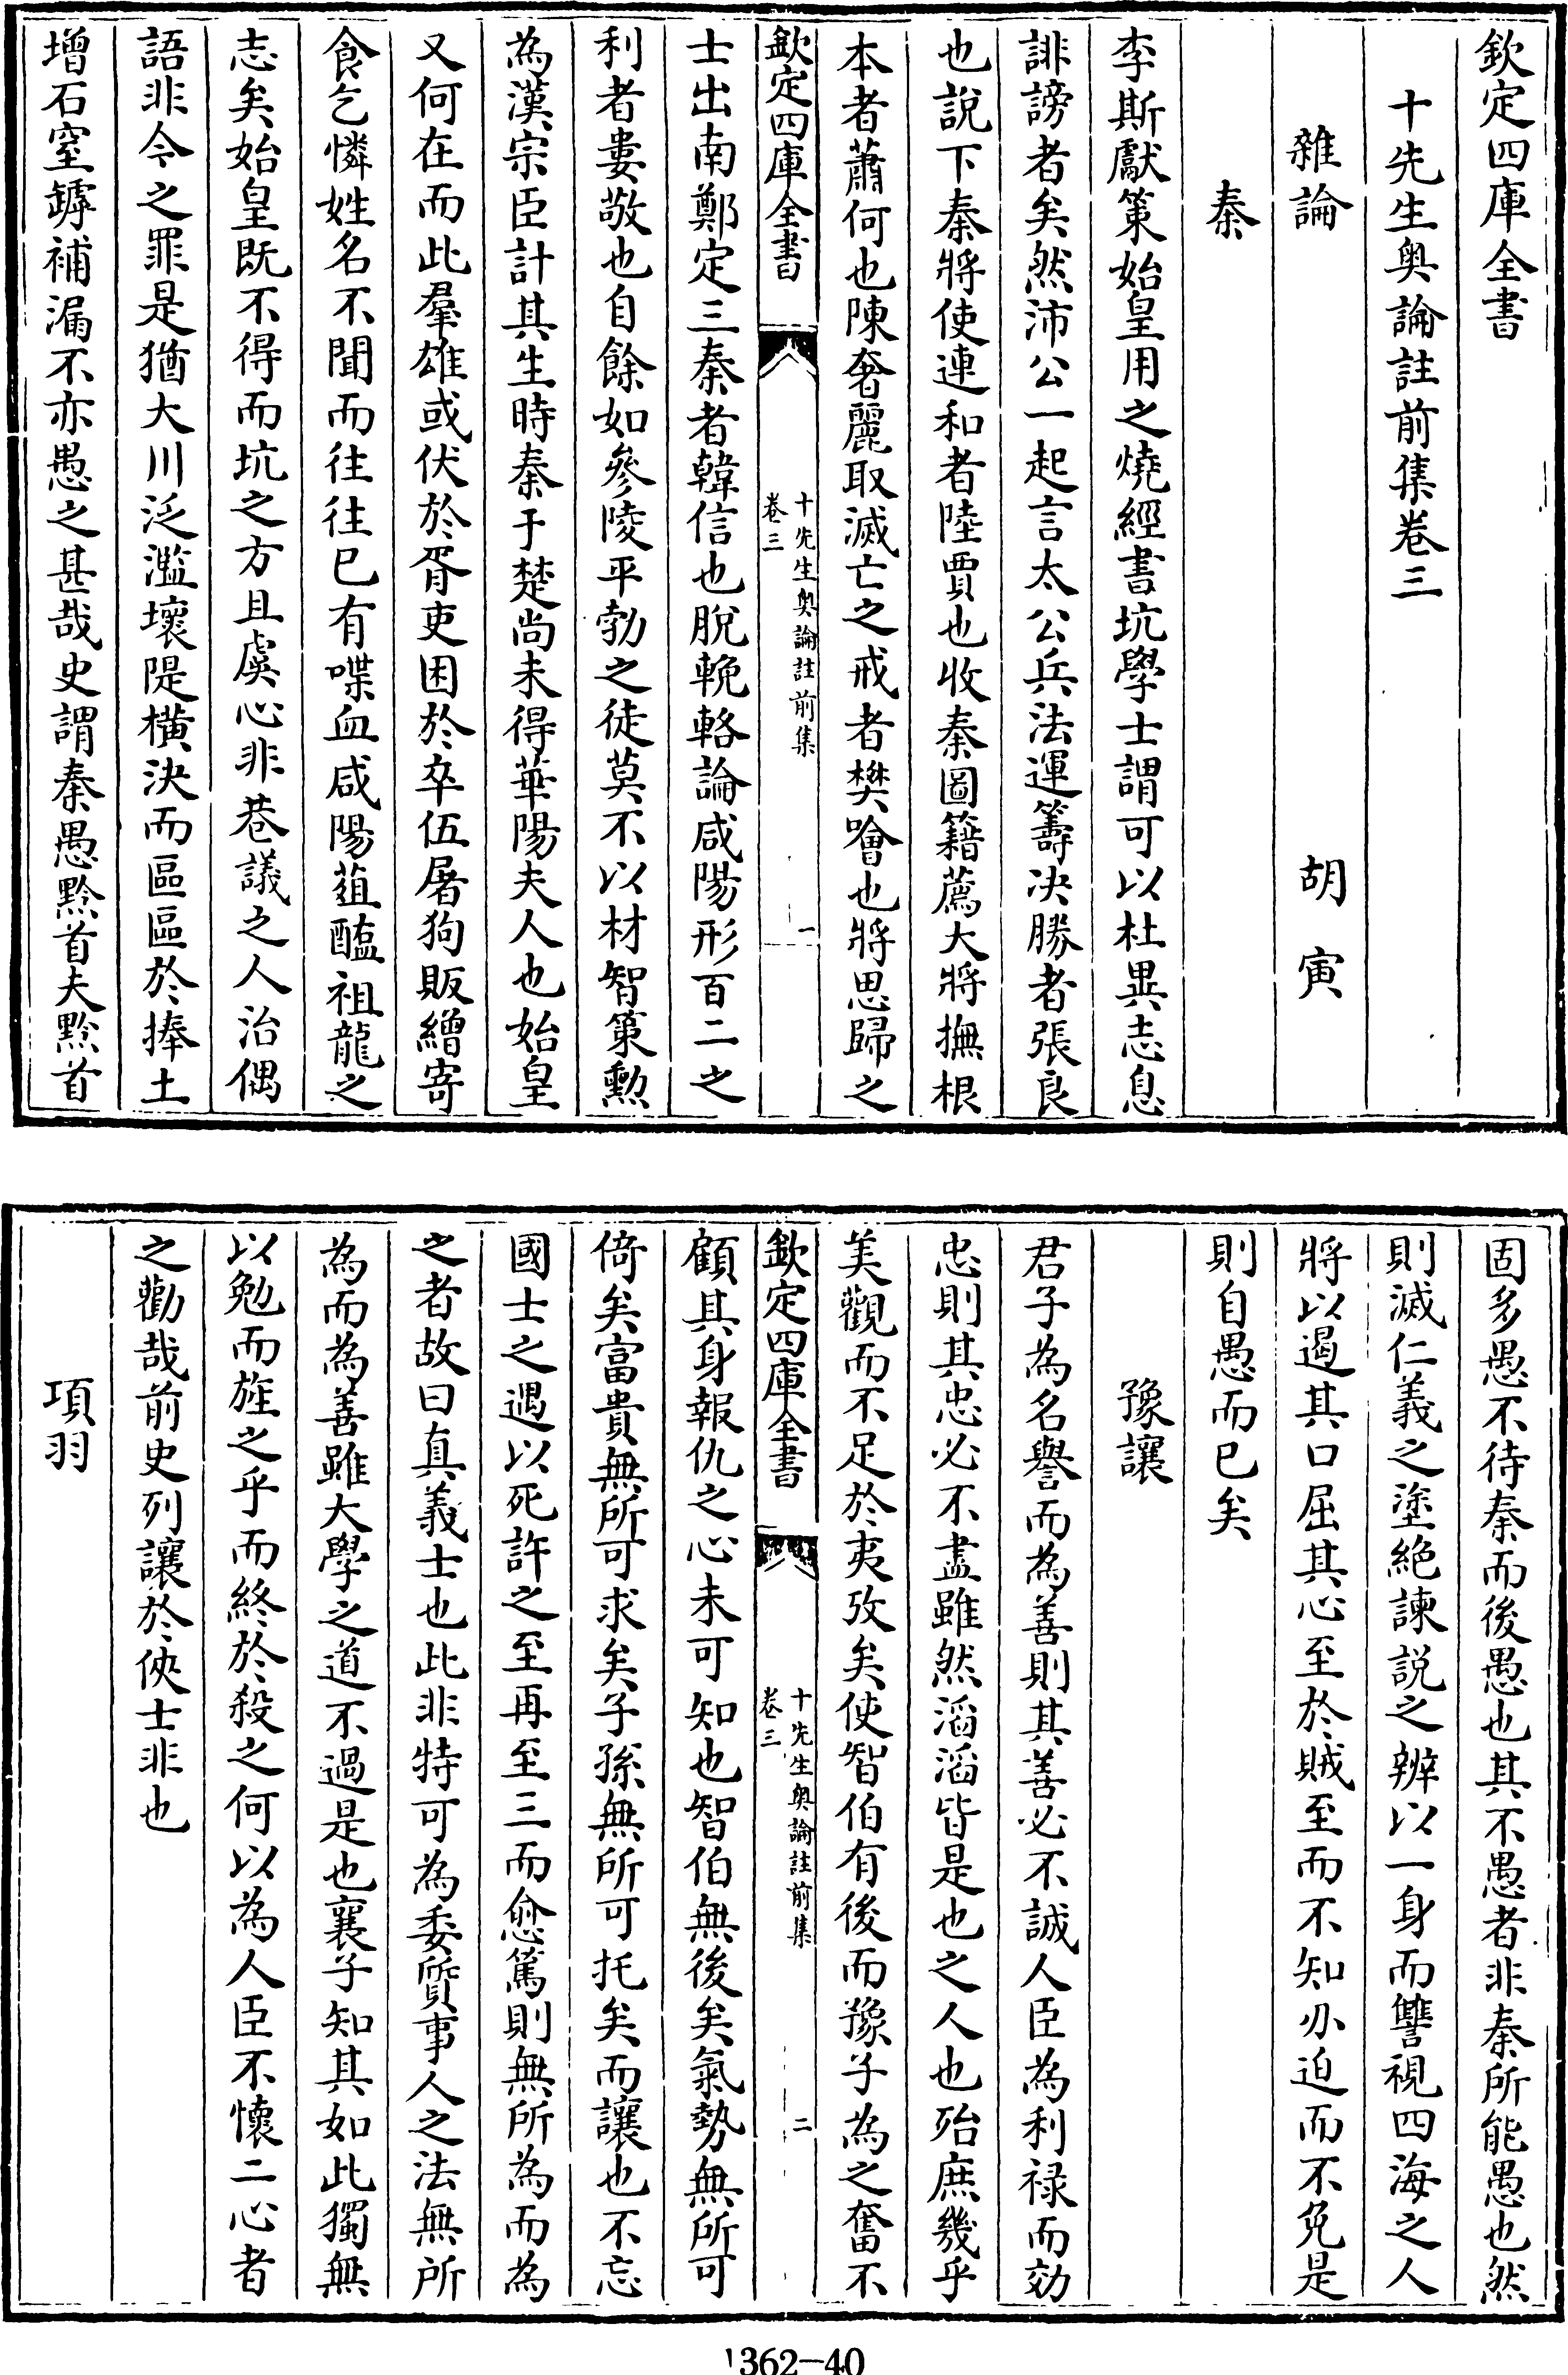 欽定四庫全書
十先生奥論註前集卷三
雜論　胡寅
秦
李斯獻策始皇用之燒經書坑學士謂可以杜異志息
誹謗者矣然沛公一起言太公兵法運籌决勝者張良
也說下秦將使連和者陸賈也收秦圖籍薦大將撫根
本者蕭何也陳奢麗取滅亡之戒者樊噲也將思歸之
欽定四庫全書
十先生奥論註前集
卷三
一
士出南鄭定三秦者韓信也脫輓輅論咸陽形百二之
利者婁敬也自餘如參陵平勃之徒莫不以材智策勲
為漢宗臣計其生時秦于楚尚未得華陽夫人也始皇
又何在而此羣雄或伏於胥吏困於卒伍屠狗販繒寄
食乞憐姓名不聞而往往已有喋血咸陽葅醢祖龍之
志矣始皇既不得而坑之方且虞心非巷議之人治偶
語非今之罪是猶大川泛濫壞隄橫決而區區於捧土
增石窒罅補漏不亦愚之甚哉史謂秦愚黔首夫黔首
固多愚不待秦而後愚也其不愚者非秦所能愚也然
則滅仁義之塗絶諫説之辨以一身而讐視四海之人
將以遏其口屈其心至於賊至而不知刃迫而不免是
則自愚而已矣
豫讓
君子為名譽而為善則其善必不誠人臣為利禄而効
忠則其忠必不盡雖然滔滔皆是也之人也殆庶幾乎
美觀而不足於夷攷矣使智伯有後而豫子為之奮不
欽定四庫全書
十先生奥論註前集
卷三
二
顧其身報仇之心未可知也智伯無後矣氣勢無所可
倚矣富貴無所可求矣子孫無所可托矣而讓也不忘
國士之遇以死許之至再至三而愈篤則無所為而為
之者故曰真義士也此非特可為委質事人之法無所
為而為善雖大學之道不過是也襄子知其如此獨無
以勉而旌之乎而終於殺之何以為人臣不懷二心者
之勸哉前史列讓於俠士非也
項羽
1362-40